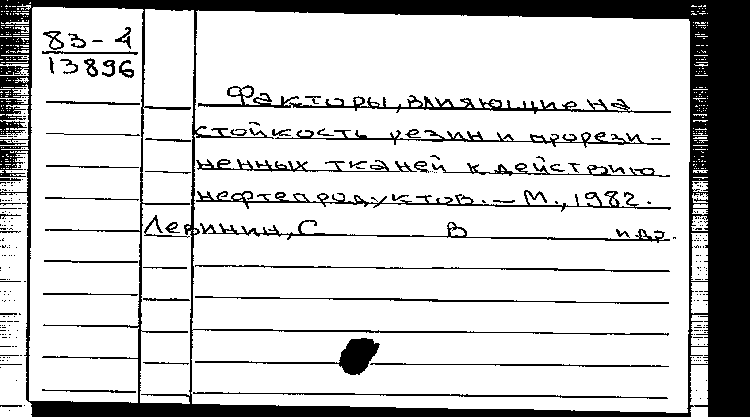 83-4
13896
Факторы, влияющие на
стойкость резин и прорези-
ненных тканей к действию
нефтепродуктов. – М., 1982.
Левинин, С В и др.